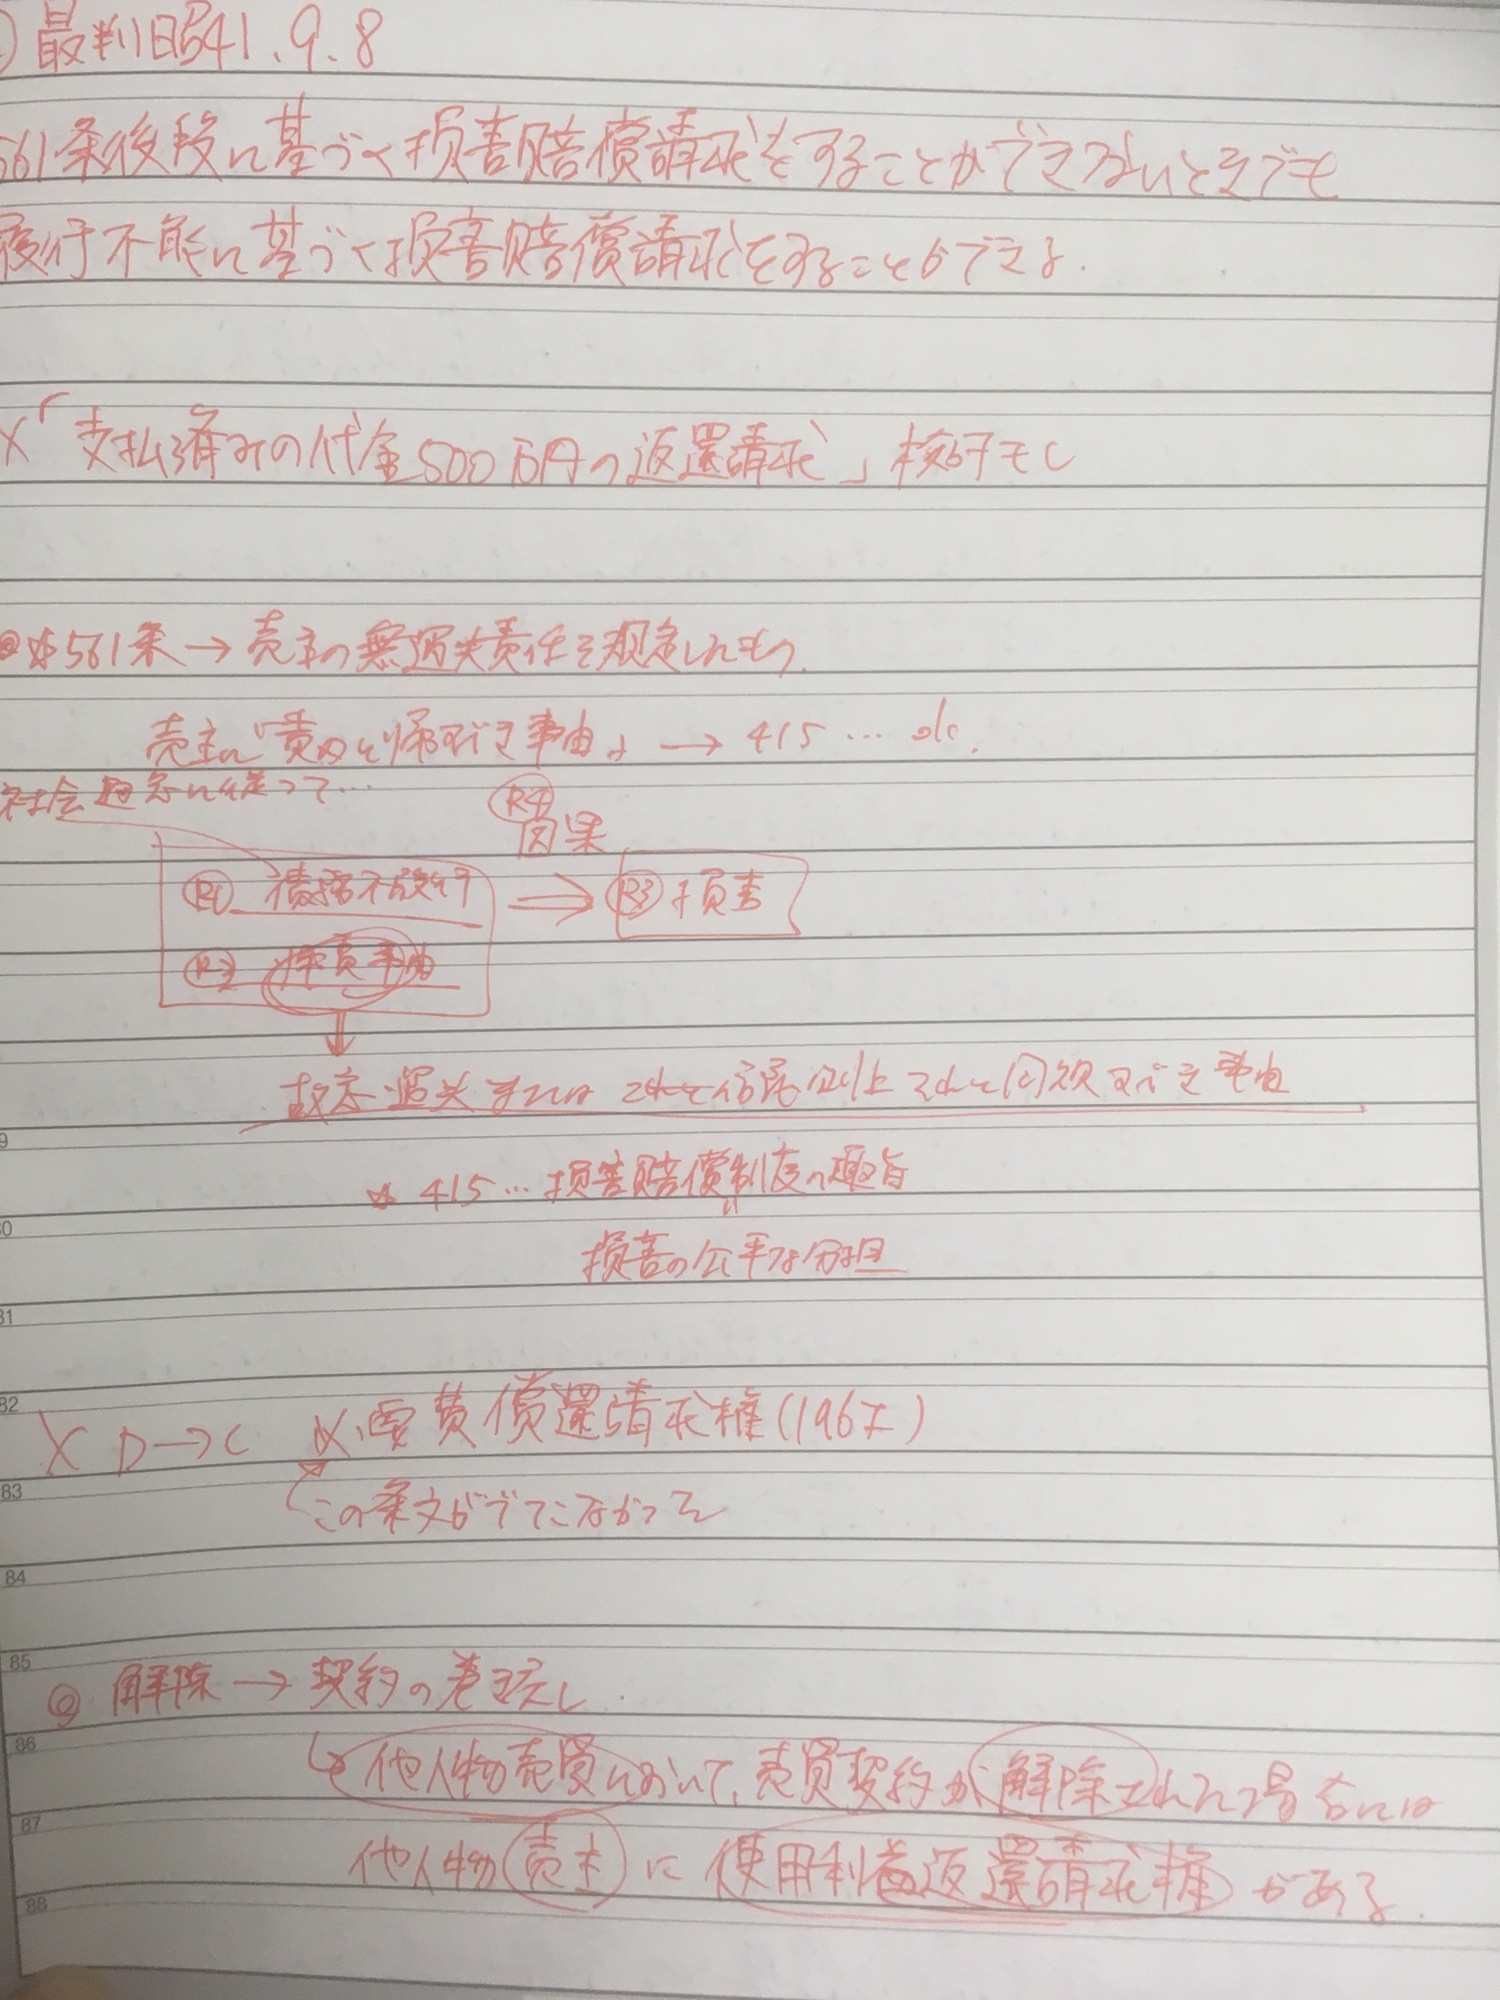 最判昭41.9.8
561条後段に基づく損害賠償請求をすることができないときでも
履行不能に基づく損害賠償請求をすることができる.
X「支払済みの代金500万円の返還請求」検討もし
561条→売主の無過失責任を規定したもの.
売主に「責めに帰すべき事由」→415…ok.
社会通念に従って…
R4
因果
R1 債務不履行 ⇒ R3 損害
R2 帰責事由
故意・過失または これと信義則上それと同視すべき事由
415…損害賠償制度の趣旨
〃
損害の公平な分担
X D→C 必要費償還請求権(196I)
この条文がでてこなかった
◎解除→契約の巻き戻し.
↳他人物売買において、売買契約が解除された場合には
他人物売主に使用利益返還請求権がある.
79
80
81
82
83
84
85
86
87
88